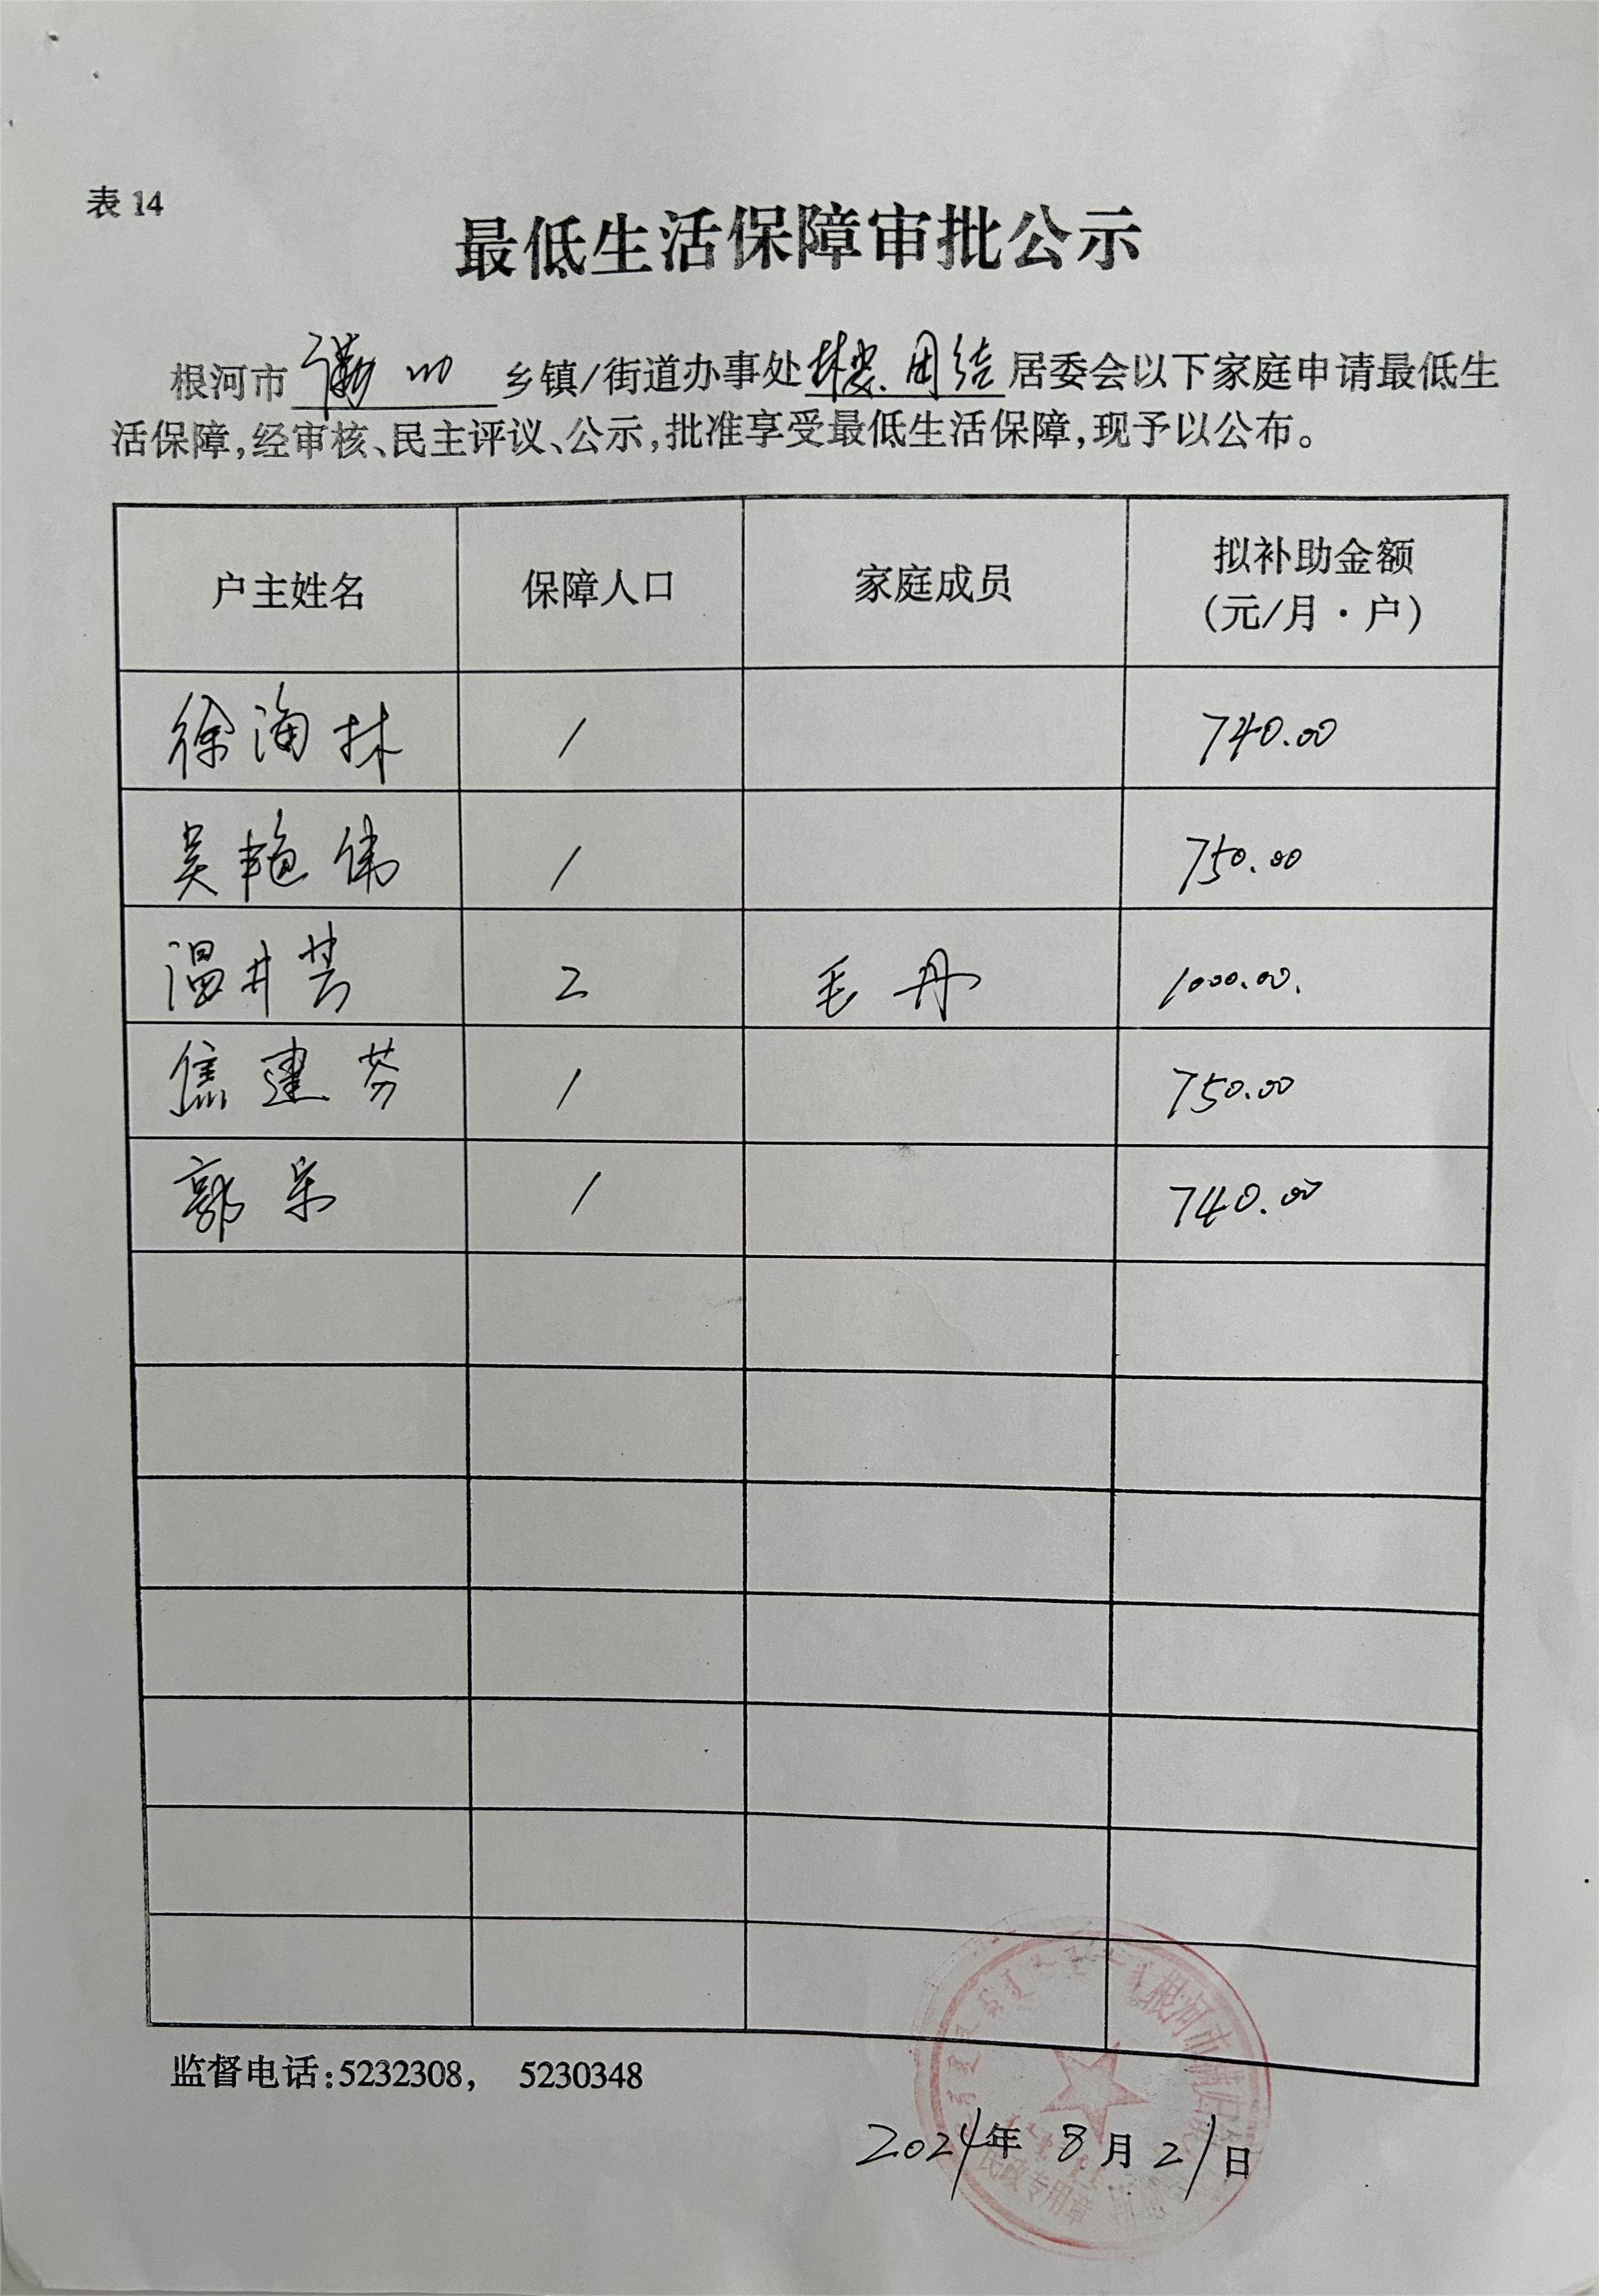 表 14
最低生活保障审批公示
根河市 乡镇/街道办事处 团结 居委会以下家庭申请最低生
活保障,经审核、民主评议、公示,批准享受最低生活保障,现予以公布。
户主姓名 保障人口 家庭成员 拟补助金额
(元/月·户)
徐海林 1 740.00
吴艳伟 1 750.00
温井芳 2 毛丹 1000.00.
焦建芬 1 750.00
郭 1 740.00
监督电话:5232308, 5230348
2024年 8月 21日
根河市
民政专用章